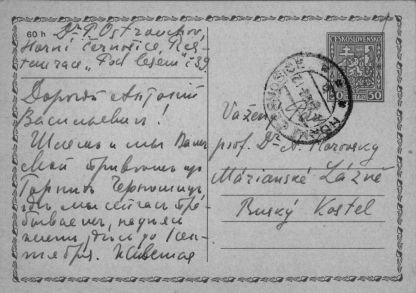 60 h Dr P. Ostrouchov,
Horní Černošice, Res-
taurace „Pod lesem" č 39
Дорогой Антоний
Васильевич!
Шлем и мы Вам
свой привет из
Горних Черношиц,
где мы сейчас пре-
бываем,
до Сен-
тября.
ČESKOSLOVENSKO
50
Vážený Pán
prof. Dr A. Florovsky
Máriánské Lázně
Ruský Kostel